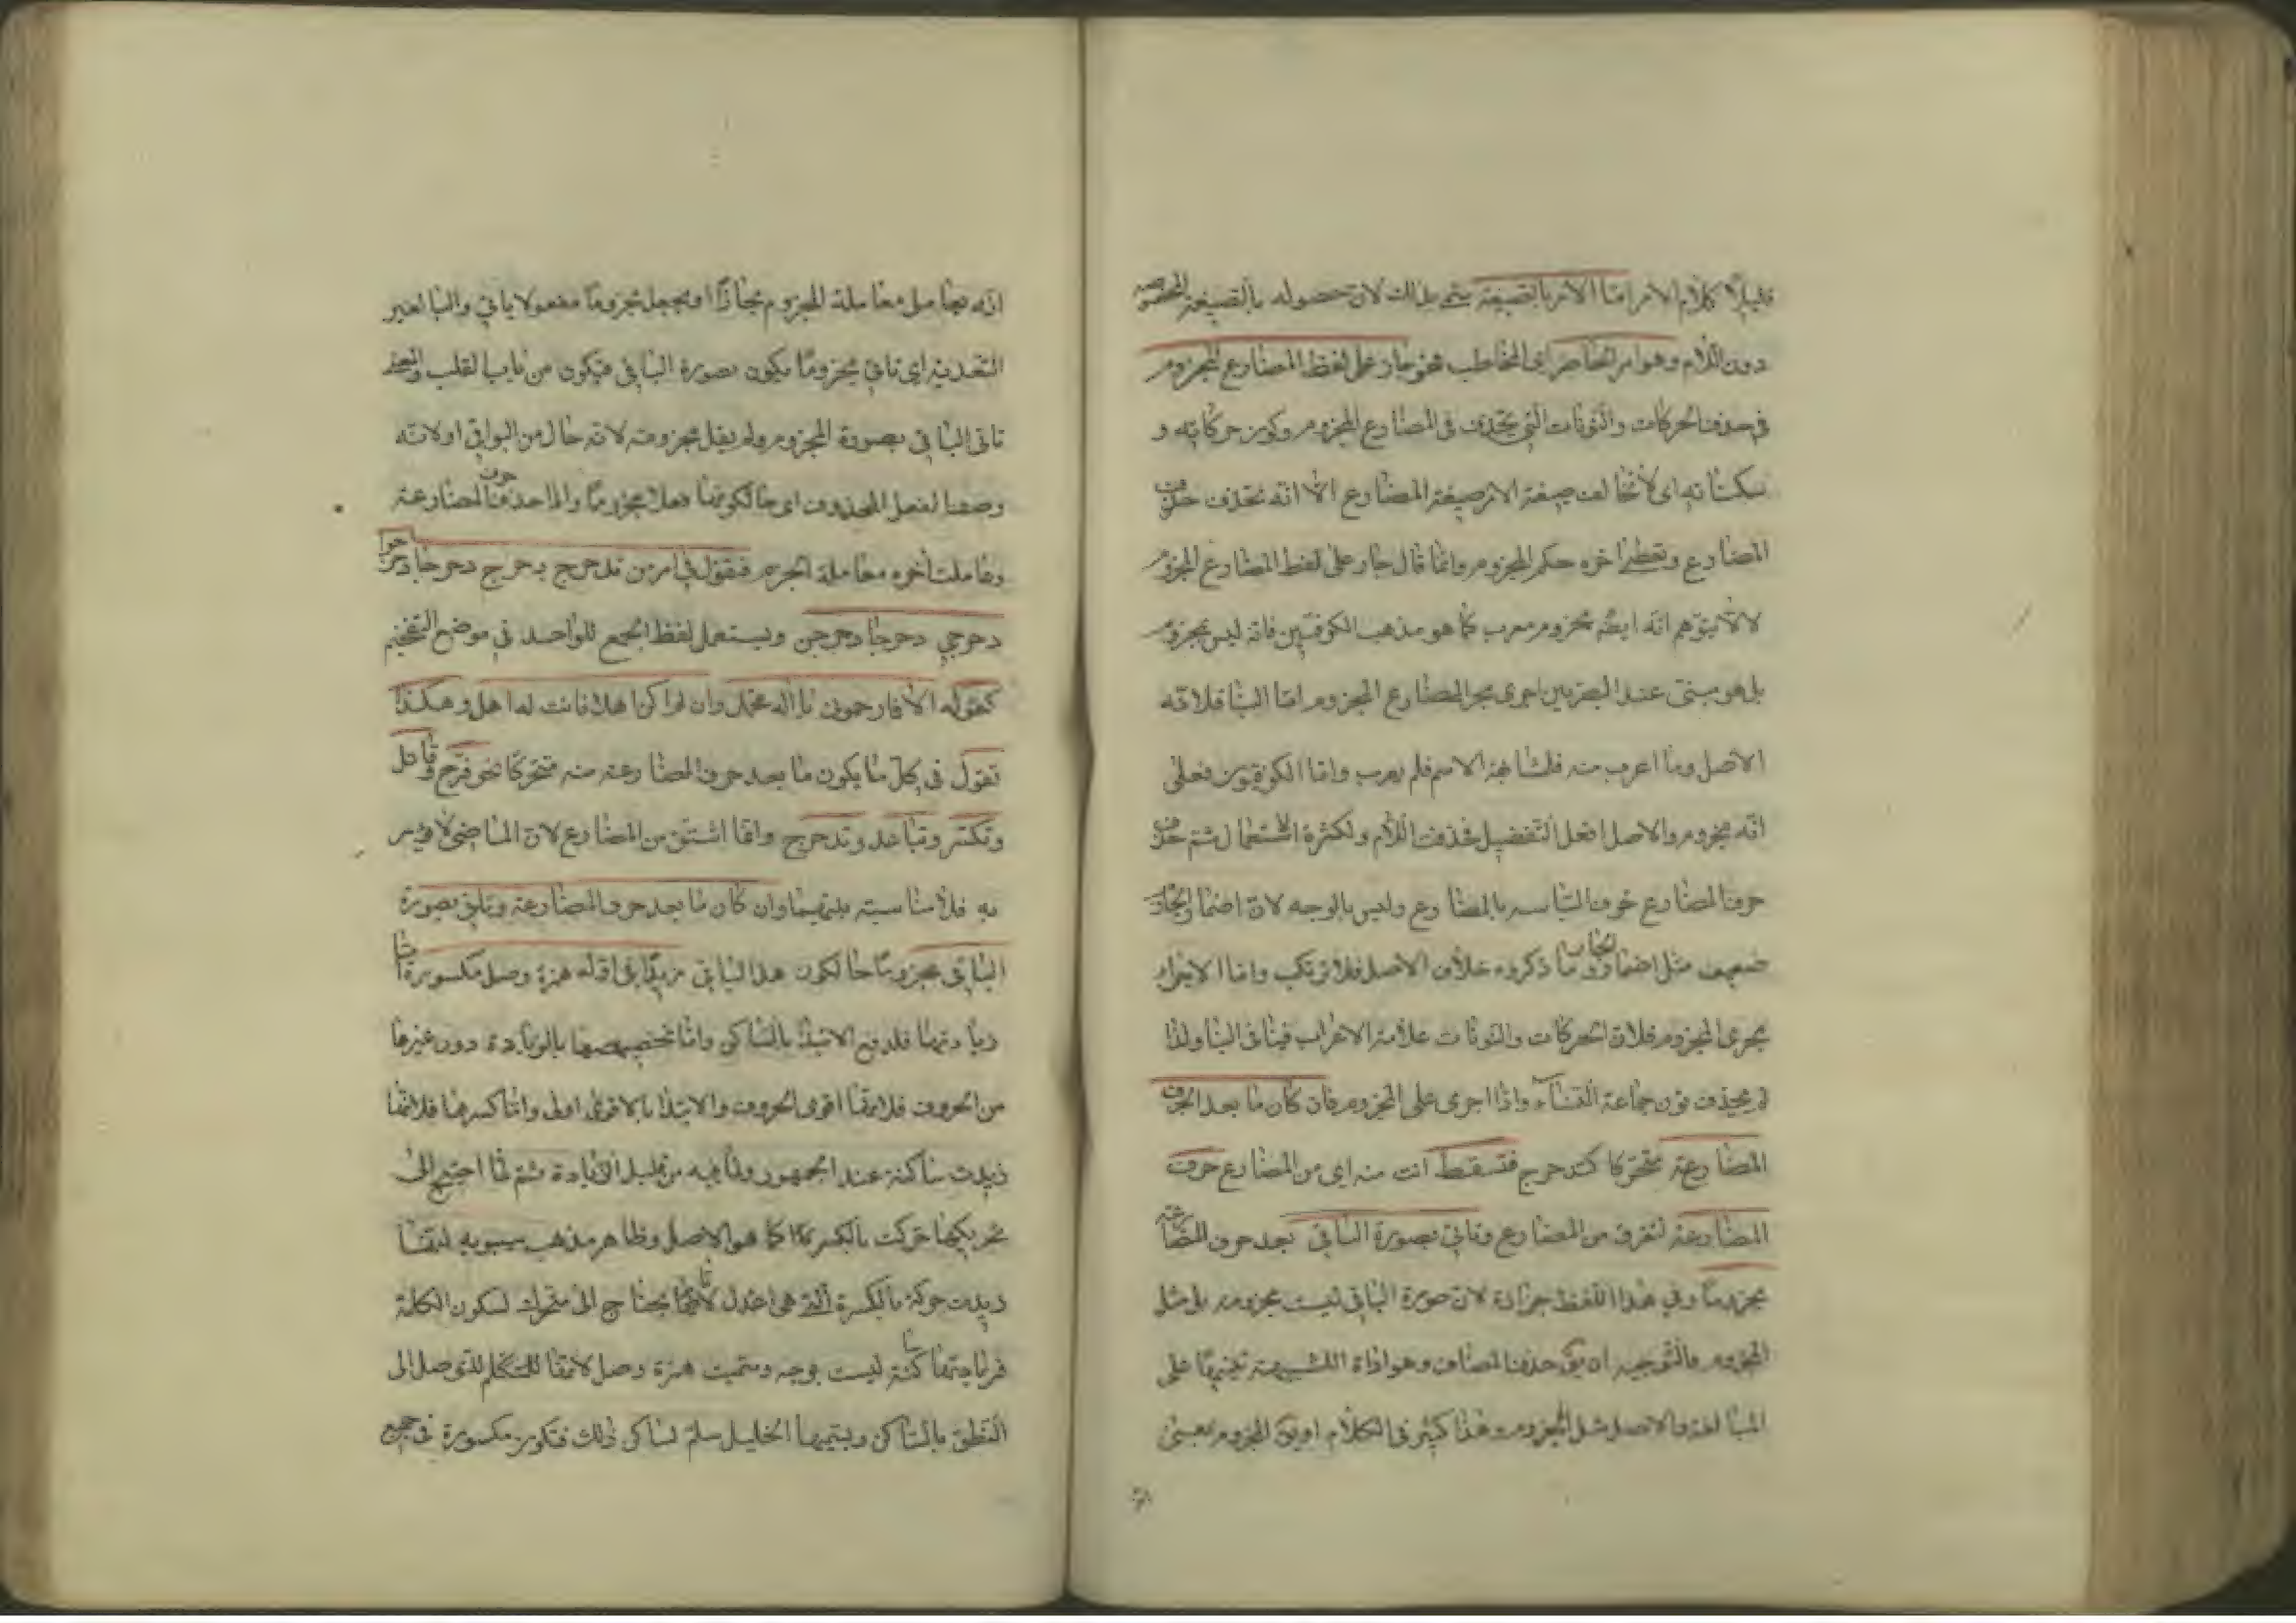 قليلا كلام الامر امّا الامر بالصيغة سمّى بذلك لان حصوله بالصيغة المخصوصة
دون اللام وهو امر الحاضر اى المخاطب فهو جار على لفظ المضارع المجزوم
فى حذف الحركات والنونات التى تحذف فى المضارع المجزوم وكون حركاته و
سكناته اى لا تخالف صيغة الامر صيغة المضارع الا انّه تحذف حرف
المضارع وتعطى اخره حكم المجزوم وانما قال جار على لفظ المضارع المجزوم
لئلا يتوهم انّه ايضا مجزوم معرب كما هو مذهب الكوفيين فانه ليس بمجزوم
بل هو مبنى عند البصريين اجرى مجرى المضارع المجزوم امّا البنا فلانّه
الاصل وما اعرب منه فلمشابهة الاسم فلم يعرب وامّا الكوفيون فعلى
انّه مجزوم والاصل افعل لتفضيل فحذفت اللام ولكثرة الاستعمال ثم حذف
حرف المضارع خوف التباسه بالمضارع وليس بالوجه لان اضمار الجازم
ضعيف مثل اضمار الجار وما ذكروه خلاف الاصل فلا يرتكب وامّا الاجراء
مجرى المجزوم فلان الحركات والنونات علامة الاعراب فينافى البنا ولذا
لم يحذف نون جماعة النساء واذا اجرى على المجزوم فان كان ما بعد الحرف
المضارعة متحركا كتدحرج فتسقط انت منه اى من المضارع حرف
المضارعة لتفرق من المضارع وتاتى بصورة الباقى بعد حرف المضارعة
مجزومًا وفى هذا اللفظ حزازة لان صورة الباقى ليست بمجزومة بل مثل
المجزوم فالتوجيه ان يق حذف المضاف وهو اداة التشبيه تنبيها على
المبالغة والاصل مثل المجزوم وهذا كثير فى الكلام او يق المجزوم بمعنى
انّه يعامل معاملة المجزوم مجازًا او يجعل مجزومًا مفعولا ياتى والبا لغير
التعدية اى تاتى مجزومًا بكون بصورة الباقى فيكون من باب القلب
تاتى الباقى بصورة المجزوم ولم يقل مجزومة لانه حال من الباقى او لانّه
وصفا لفعل المحذوف اى حالكونها فعلا مجزومًا واذا حذفت حرف المضارعة
وعاملت آخره معاملة الجزم فتقول فى امر من تدحرج دحرج دحرجا دحرجوا
دحرجي دحرجا دحرجن ويستعمل لفظ الجمع للواحد فى موضع التفخيم
كقوله الا فارحمونى يا اله محمد وان لم اكن اهلا فانت له اهل وهكذا
تقول فى كل ما يكون ما بعد حرف المضارعة منه متحركا نحو فرّح وقاتل
وتكسّر وتباعد وتدحرج وامّا اشتق من المضارع لان الماضى لا يؤمر
به فلا مناسبة بينهما وان كان ما بعد حرف المضارعة وتاتى بصورة
الباقى مجزومًا حالكون هذا الباقى مزيدًا فى اوله همزة وصل مكسورة امّا
زيادتها فلدفع الابتدا بالساكن وامّا تخصيصها بالزيادة دون غيرها
من الحروف فلانها اقوى الحروف والابتدا بالاقوى اولى وامّا كسرها فلانها
زيدت ساكنة عند الجمهور ولما فيه من تقليل الزيادة ثم لمّا احتيج الى
تحريكها حركت بالكسر كما هو الاصل وظاهر مذهب سيبويه انها
زيدت متحركة بالكسرة التى هى اعدل لانا نحتاج الى متحرك لسكون الكلمة
فزيادتها ساكنة ليست بوجه وسميت همزة وصل لانها للمتكلم للتوصل الى
النطق بالساكن ويسميها الخليل سلّم لساكن ذلك فتكون مكسورة فى جميع